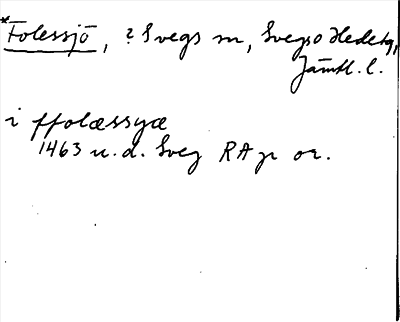 *Folessjö, ? Svegs sn, Svegs o Hede tg,
Jämtl. l.
i ffolæssyæ
1463 u.d. Sveg RAp or.